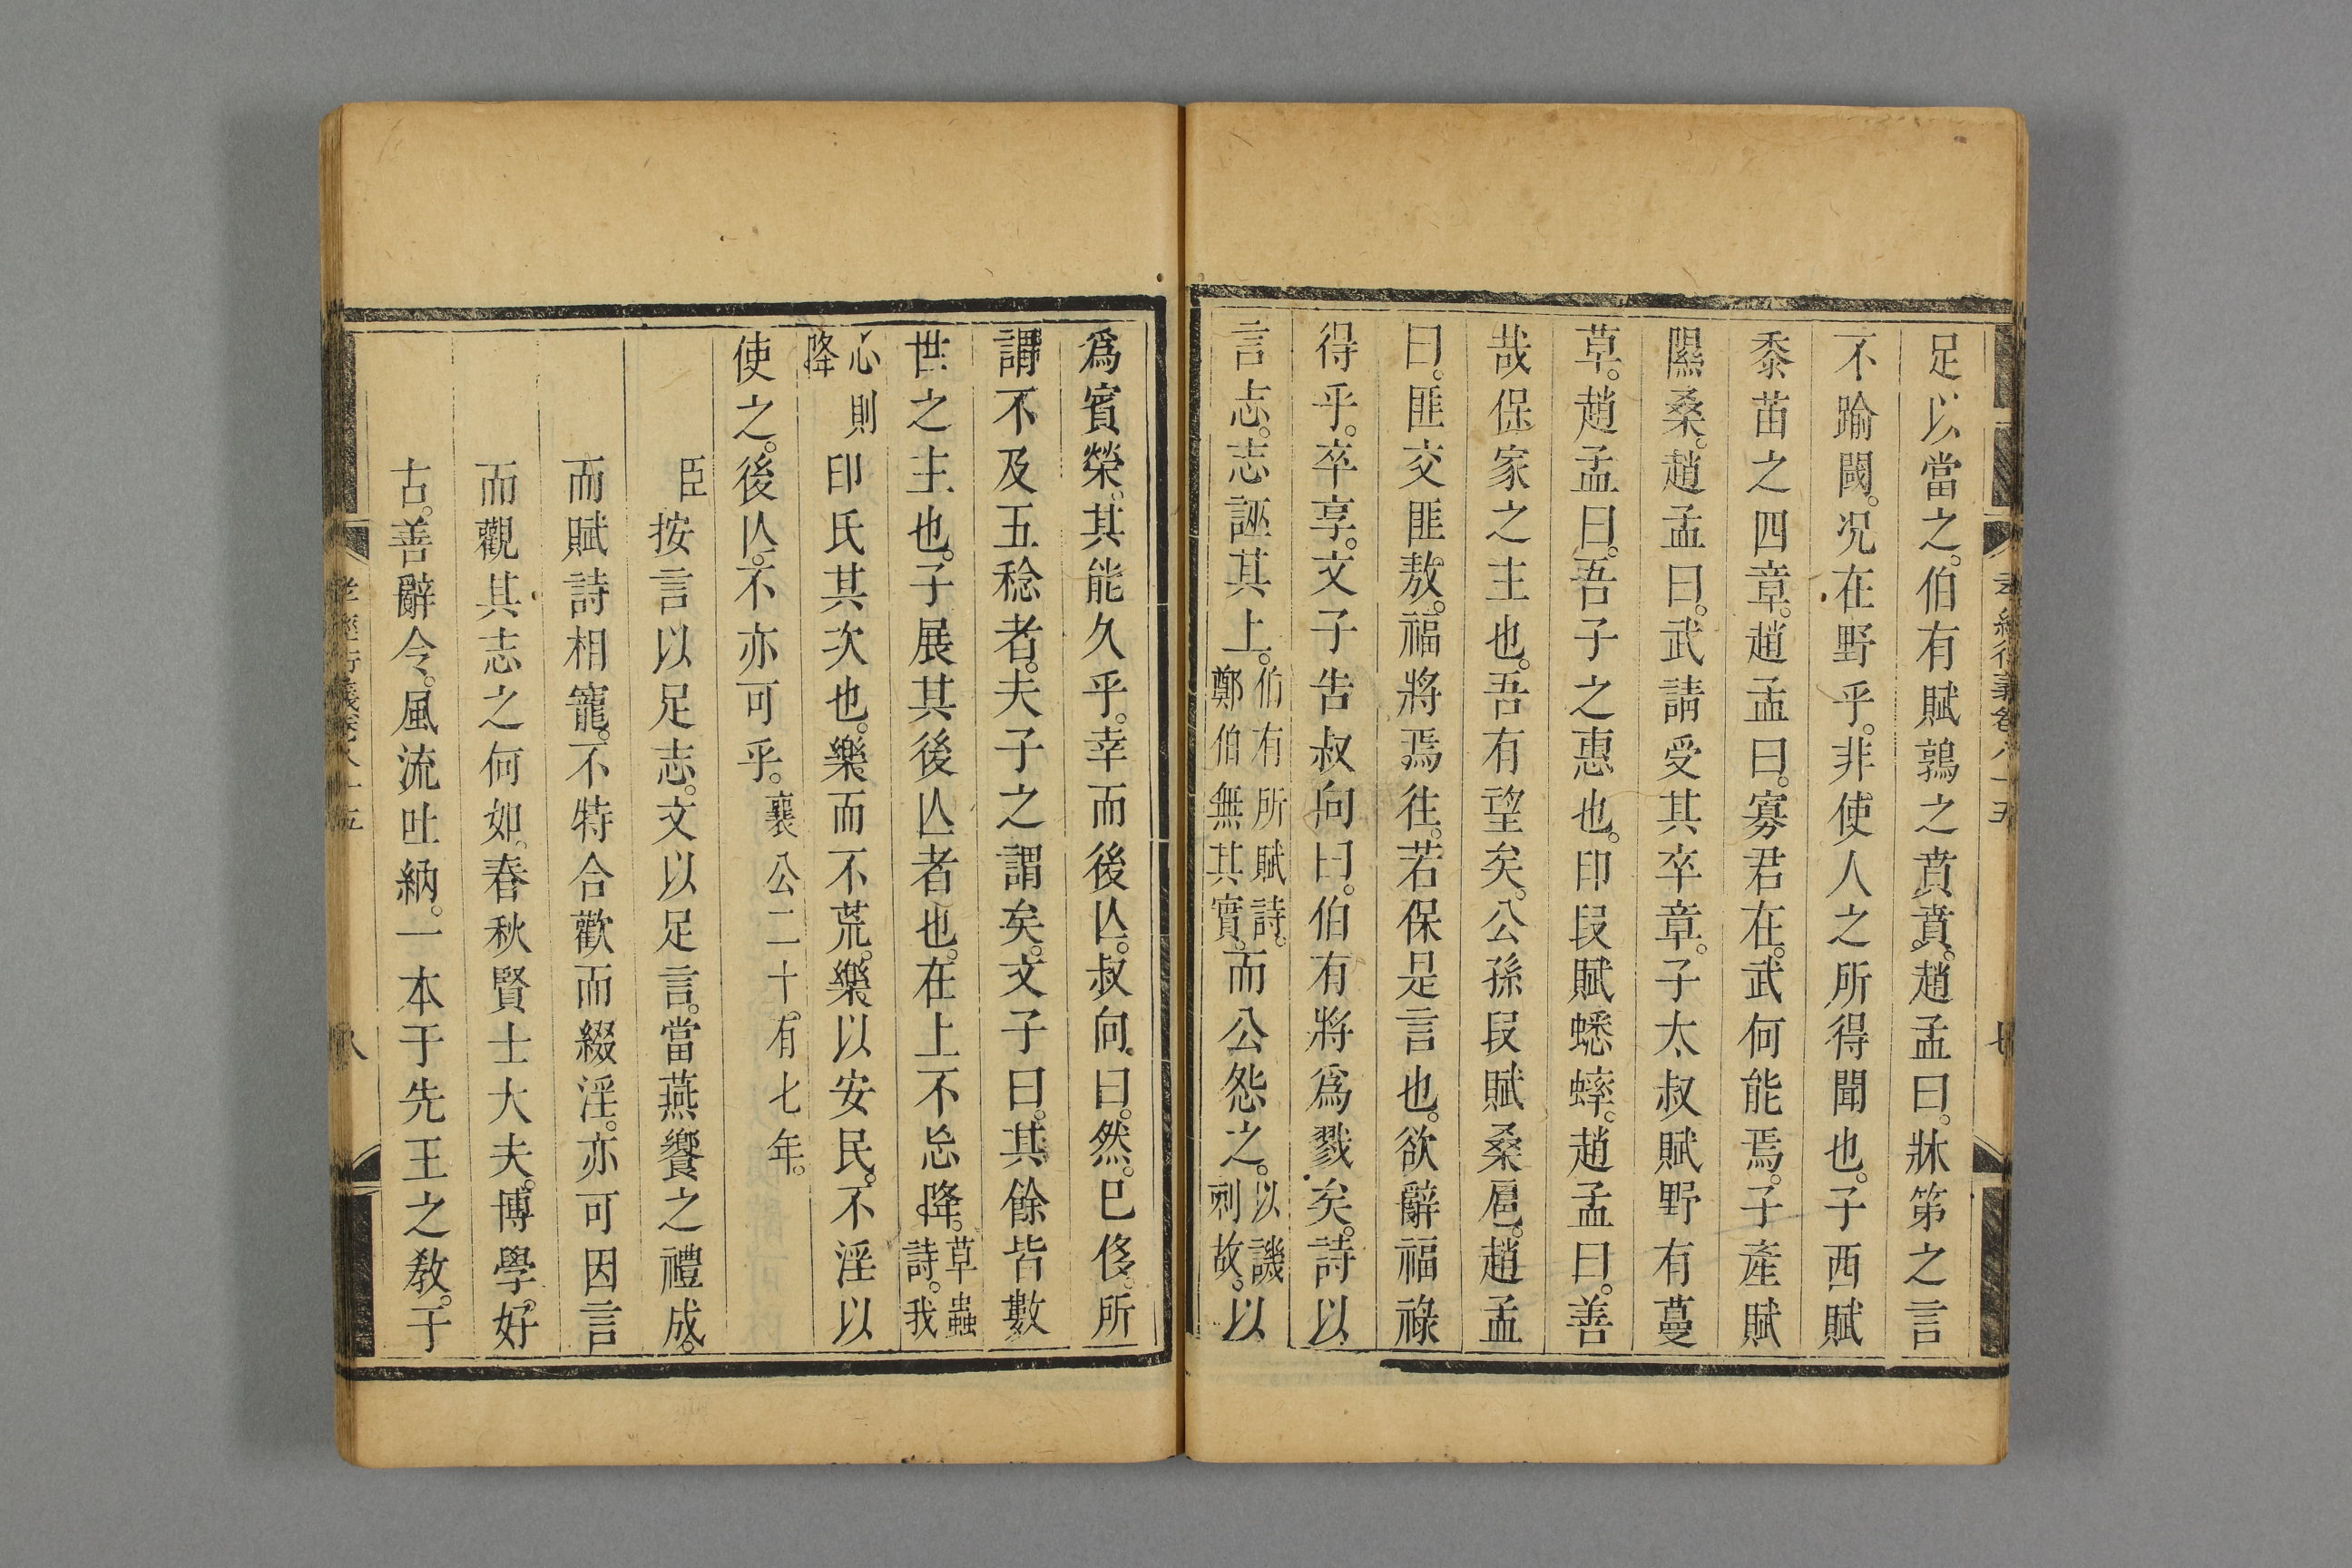 足以當之。伯有賦鶉之賁賁。趙孟曰。牀第之言
不踰閾。况在野乎。非使人之所得聞也。子西賦
黍苗之四章。趙孟曰。寡君在。武何能焉。子產賦
隰桑。趙孟曰。武請受其卒章。子太叔賦野有蔓
草。趙孟曰。吾子之惠也。印叚賦蟋蟀。趙孟曰。善
哉保家之主也。吾有望矣。公孫叚賦桑扈。趙孟
曰。匪交匪敖。福將焉往。若保是言也。欲辭福祿
得乎。卒享。文子告叔向曰。伯有將爲戮矣。詩以
言志。志誣其上。伯有所賦詩。鄭伯無其實。而公怨之。以譏刺故。以
爲賓榮。其能久乎。幸而後亾。叔向曰。然。已侈。所
謂不及五稔者。夫子之謂矣。文子曰。其餘皆數
世之主也。子展其後亾者也。在上不忘降。草蟲詩。我
心則降印氏其次也。樂而不荒。樂以安民。不淫以
使之。後亾。不亦可乎。襄公二十有七年。
臣按言以足志。文以足言。當燕饗之禮成。
而賦詩相寵。不特合歡而綴淫。亦可因言
而觀其志之何如。春秋賢士大夫。博學。好
古。善辭令。風流吐納。一本于先王之教。于
孝經衍義卷八十五
八